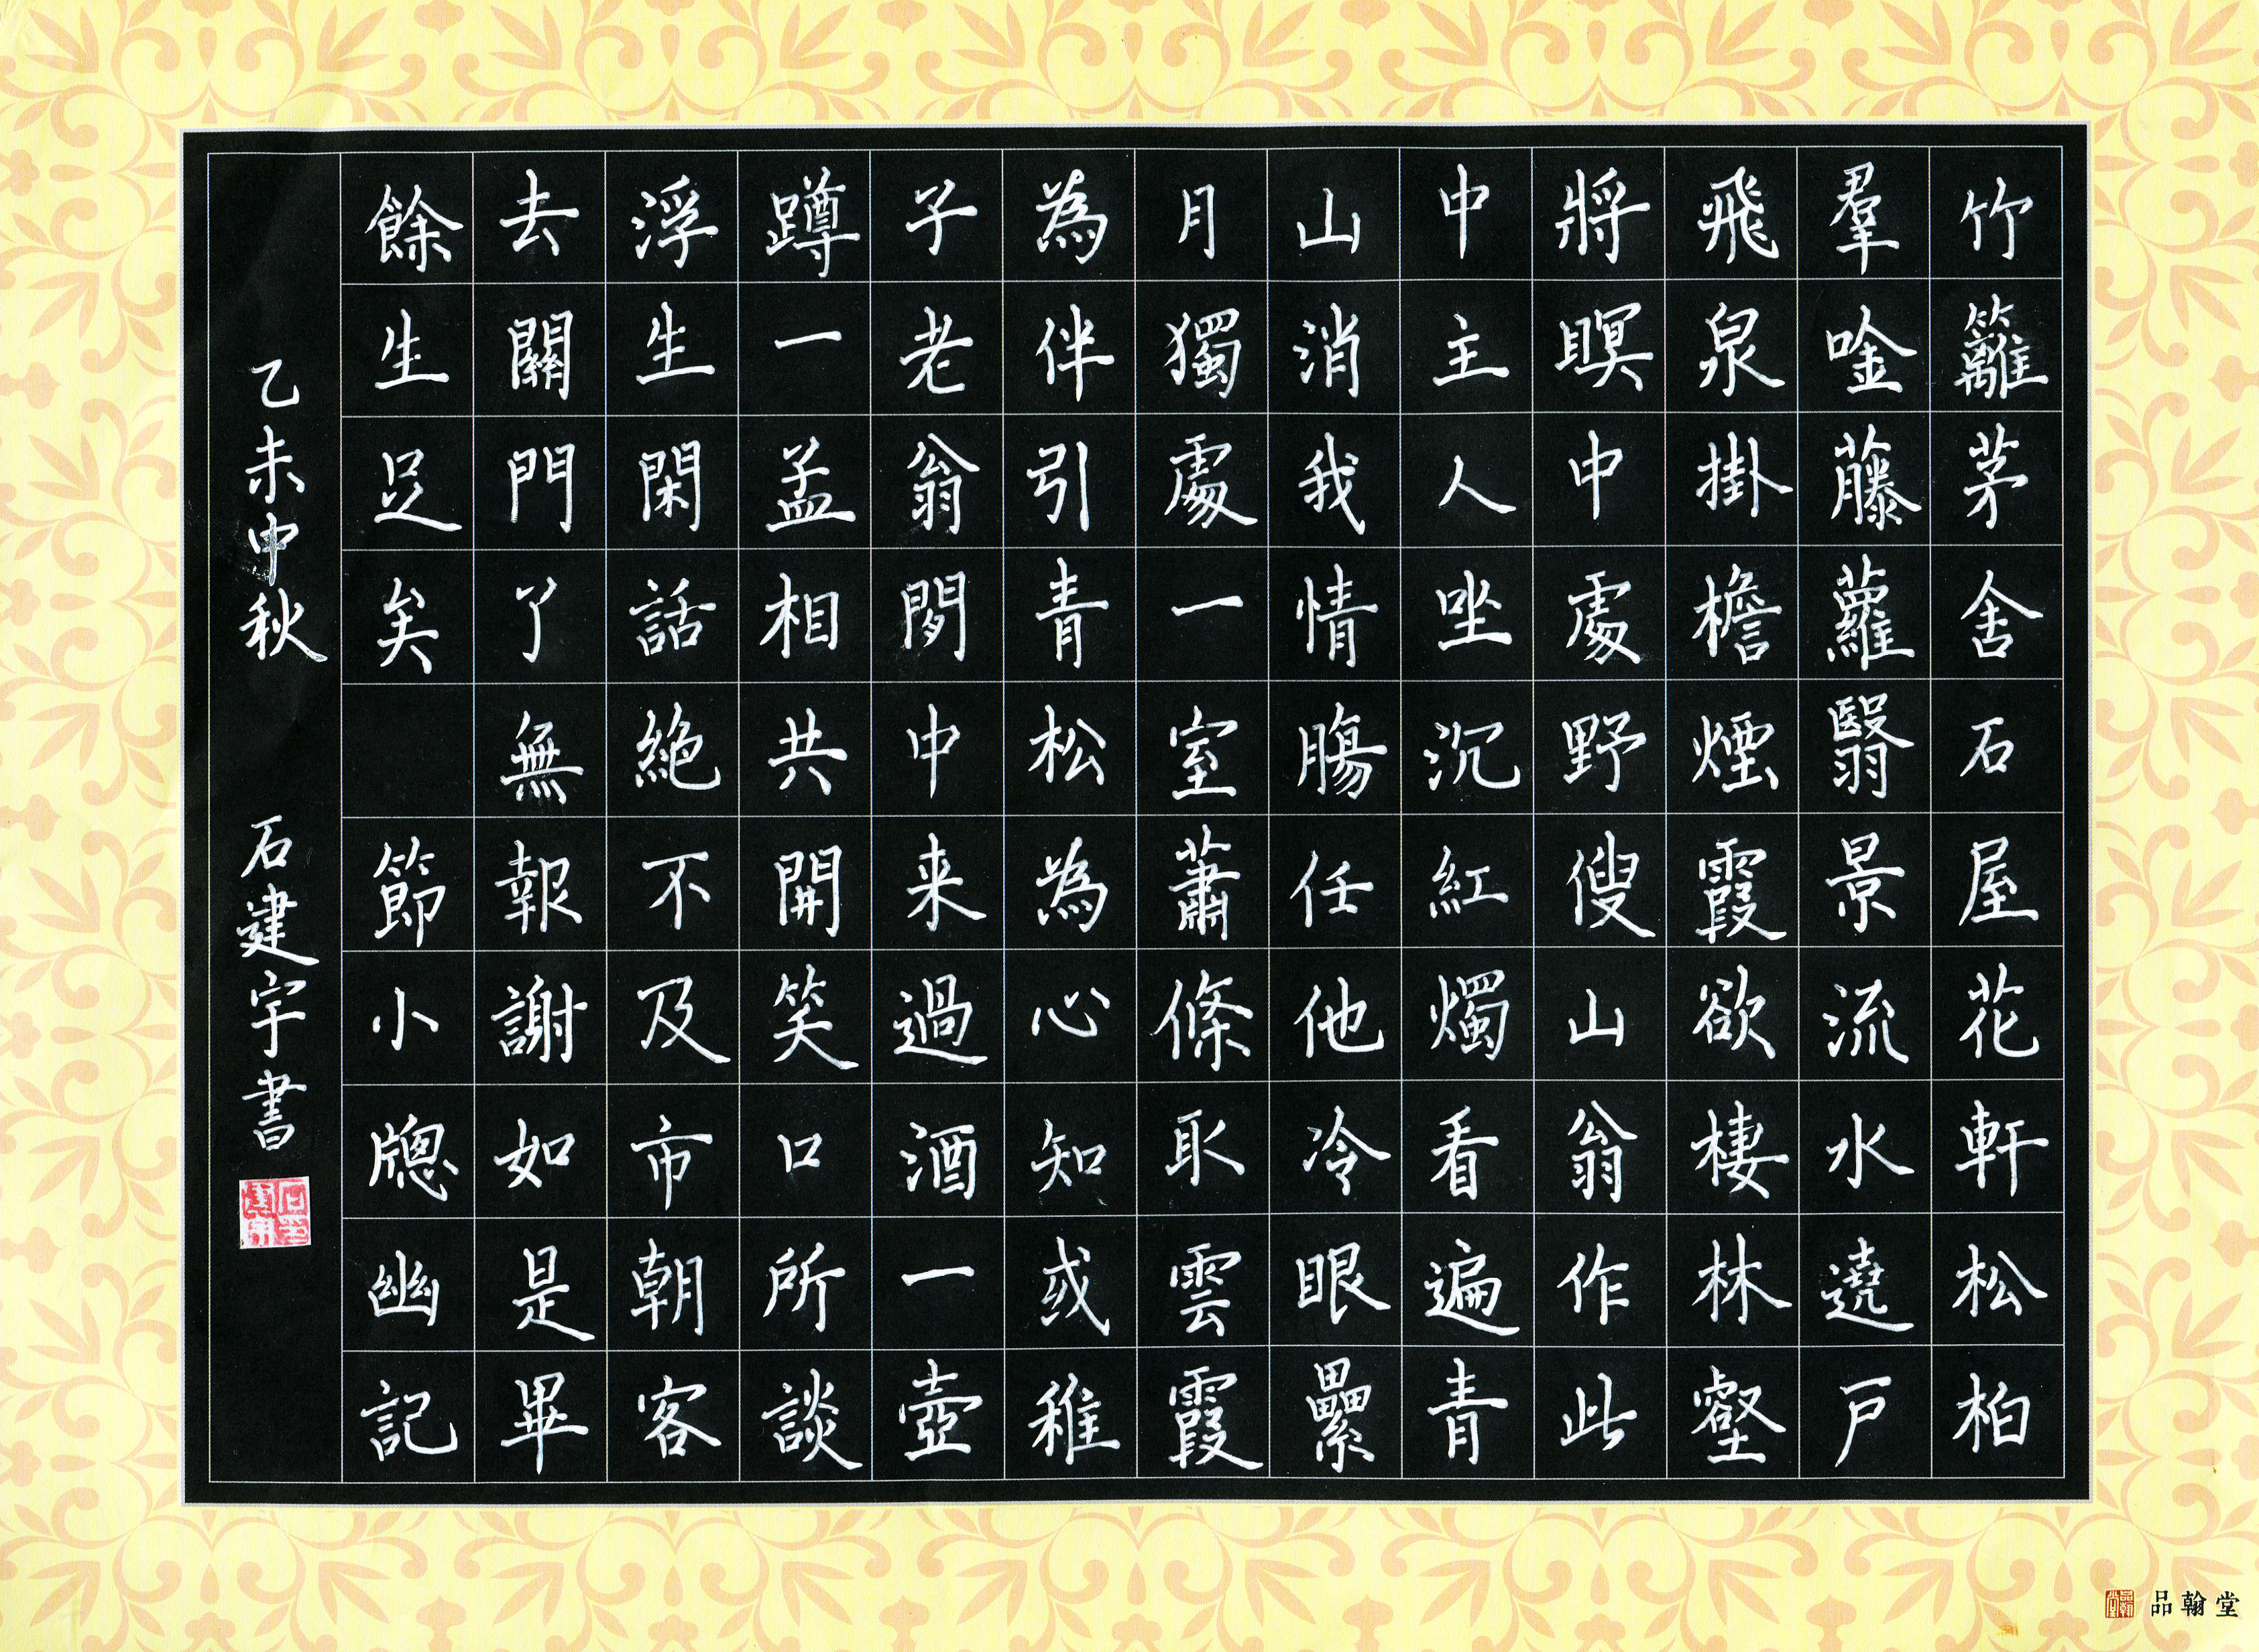 竹籬茅舍石屋花軒松柏
羣唫藤蘿翳景流水遶戶
飛泉掛檐煙霞欲棲林壑
將暝中處野傁山翁作此
中主人坐沉紅燭看遍青
山消我情腸任他冷眼纍
月獨處一室蕭條取雲霞
為伴引青松為心知或稚
子老翁閒中来過酒一壺
蹲一盂相共開笑口所談
浮生閑話絕不及市朝客
去關門了無報謝如是畢
餘生足矣 節小牕幽記
乙未中秋 石建宇書
品翰堂